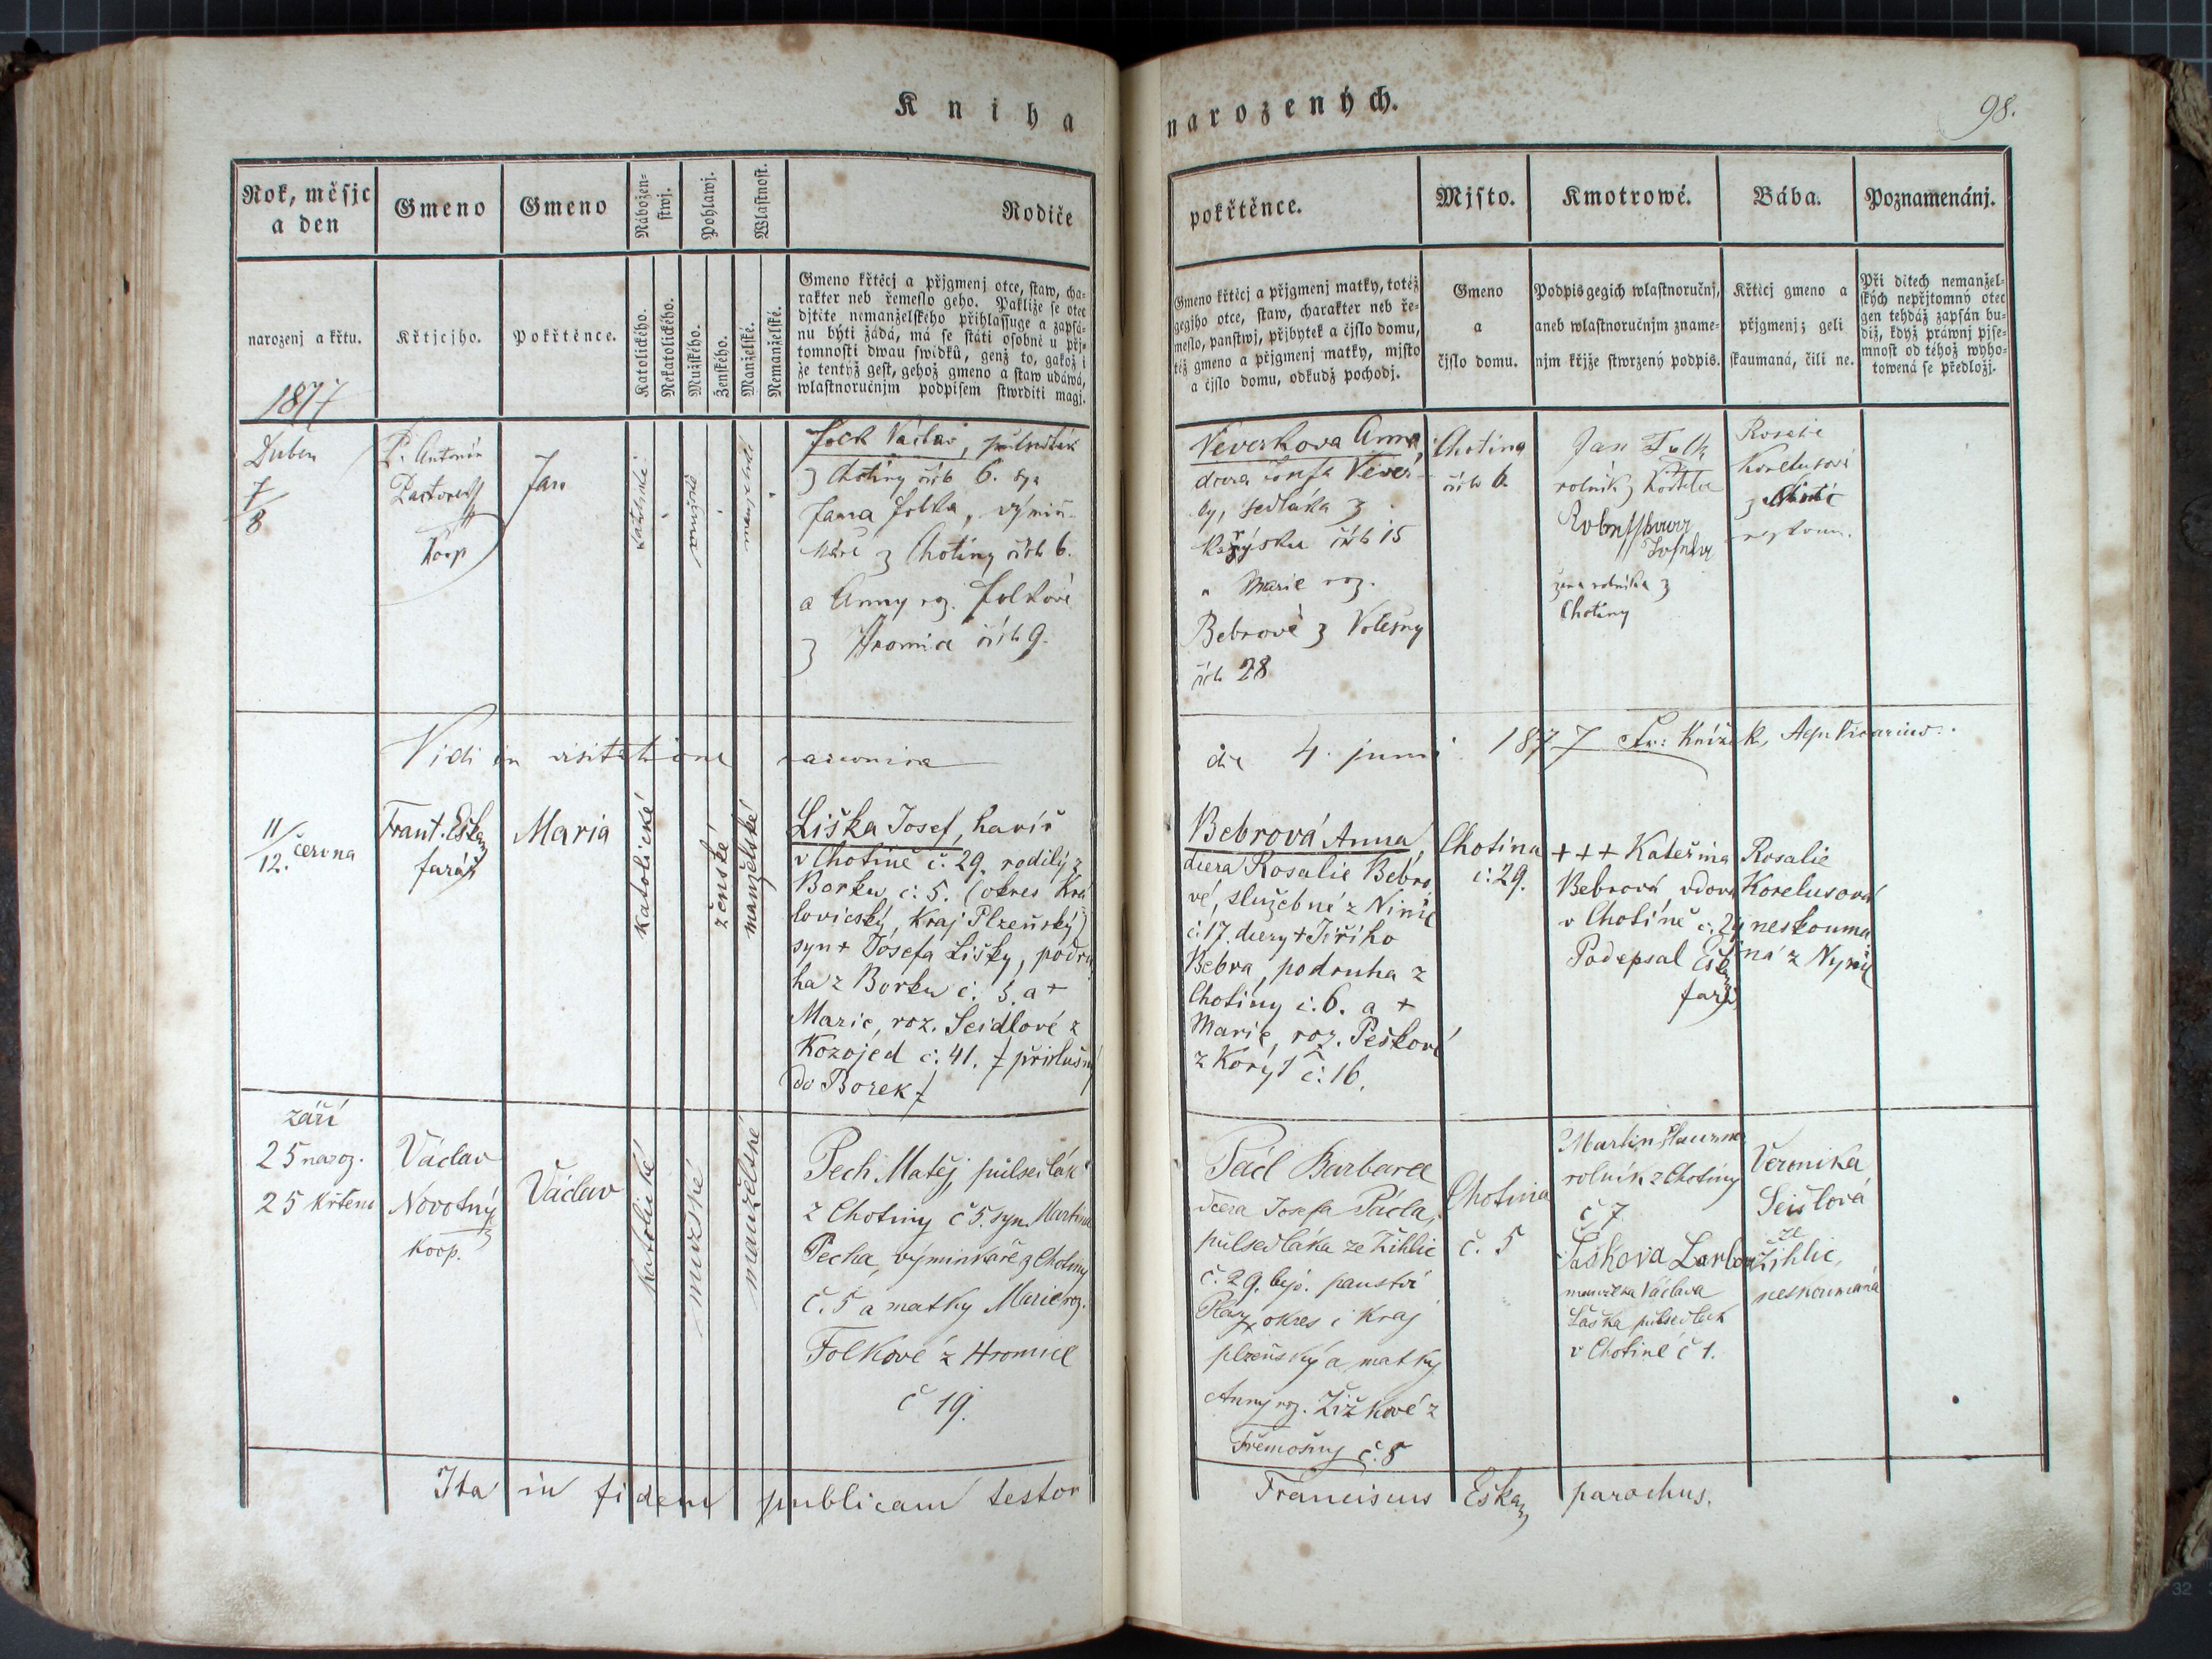 Kniha
narozených.
98.
Rok, měsjc
a den
Gmeno
Gmeno
Nábožen-
stwj.
Pohlawj.
Wlastnost.
Rodiče
pokřtěnce.
Mjsto.
Kmotrowé.
Bába.
Poznamenánj.
narozenj a křtu.
1877
Křtjcjho.
Pokřtěnce.
Katolického.
Nekatolického.
Mužského.
Ženského.
Manželské.
Nemanželské.
Gmeno křtěcj a přjgmenj otce, staw, cha-
rakter neb řemeslo geho. Pakliže se otec
djtěte nemanželského přihlassuge a zapsá-
nu býti žádá, má se státi osobně u přj-
tomnosti dwau swědků, genž to, gakož i
že tentýž gest, gehož gmeno a staw udáwá,
wlastnoručnjm podpisem stwrditi magj.
Gmeno křtěcj a přjgmenj matky, totéž
gegjho otce, staw, charakter neb ře-
meslo, panstwj, přjbytek a čjslo domu,
též gmeno a přjgmenj matky, mjsto
a čjslo domu, odkudž pocházj.
Gmeno
a
čjslo domu.
Podpis gegich wlastnoručnj,
aneb wlastnoručnjm zname-
njm křjže stwrzený podpis.
Křtěcj gmeno a
přjgmenj; geli
skaumaná, čili ne.
Při dětech nemanžel-
ských nepřjtomný otec
gen tehdáž zapsán bu-
diž, když práwnj pjse-
mnost od téhož wyho-
towená se předložj.
Duben
7
8
P. Antonín
Koop
Jan
katolické
mužské
manželské
Folk Václav, půlsedlák
z Chotiny čís 6. syn
Jana Folka, výmin-
káře z Chotiny čís 6.
a Anny roz. Folkové
z Hromic čís 9.
Veverkova Anna,
dcera Josefa Vever-
ky, sedláka z
čís 15
a Marie roz.
Bebrové z Volešny
čís 28
Chotina
čís 6.
Jan Folk
rolník z
žena rolníka z
Chotiny
Rosalie
Korelusová
z
neskoum.
Vidi in visitatione canonica
die 4. junii 1877 Fr: Knížek, Agn. Vicarius.
11/12. června
Frant. Eška
farář
Maria
katolické
ženské
manželské
Liška Josef, havíř
v Chotině č. 29. rodilý z
Borku č. 5. (okres Kra
lovický, Kraj Plzeňský)
syn + Josefa Lišky, podru
ha z Borku č. 5. a +
Marie, roz. Seidlové z
Kozojed č. 41. / příslušný
do Borek /
Bebrová Anna,
dcera Rosalie Bebro
vé, služebné z Ninic
č. 17. dcery + Jiřího
Bebra, podruha z
Chotiny č. 6. a +
Marie, roz. Peškové
z Koryt č. 16.
Chotina
č. 29.
+++ Kateřina
Bebrová vdova
v Chotině č. 29
Podepsal Eška
farář
Rosalie
Korelusová
neskouma
ná z Nynic
září
25 naroz.
25 křten
Václav
Novotný
koop.
Václav
katolické
mužské
manželské
Pech Matěj, půlsedlák
z Chotiny č 5. syn Martina
Pecha, výminkáře z Chotiny
č. 5 a matky Marie roz.
Folkové z Hromic
č 19.
Pácl Barbara
dcera Josefa Pácla,
půlsedláka ze Žihlic
č. 29. býv. panství
Plasy okres i Kraj
plzeňský a matky
Anny roz. Žižkové z
Třemošny č. 8
Chotina
č. 5
Martin
rolník z Chotiny
č 7.
manželka Václava
Laška půlsedlák
v Chotině č 1.
Veronika
Seidlová
ze
Žihlic,
neskoumaná
Ita in fidem publicam testor
Franciscus Eška parochus.
32